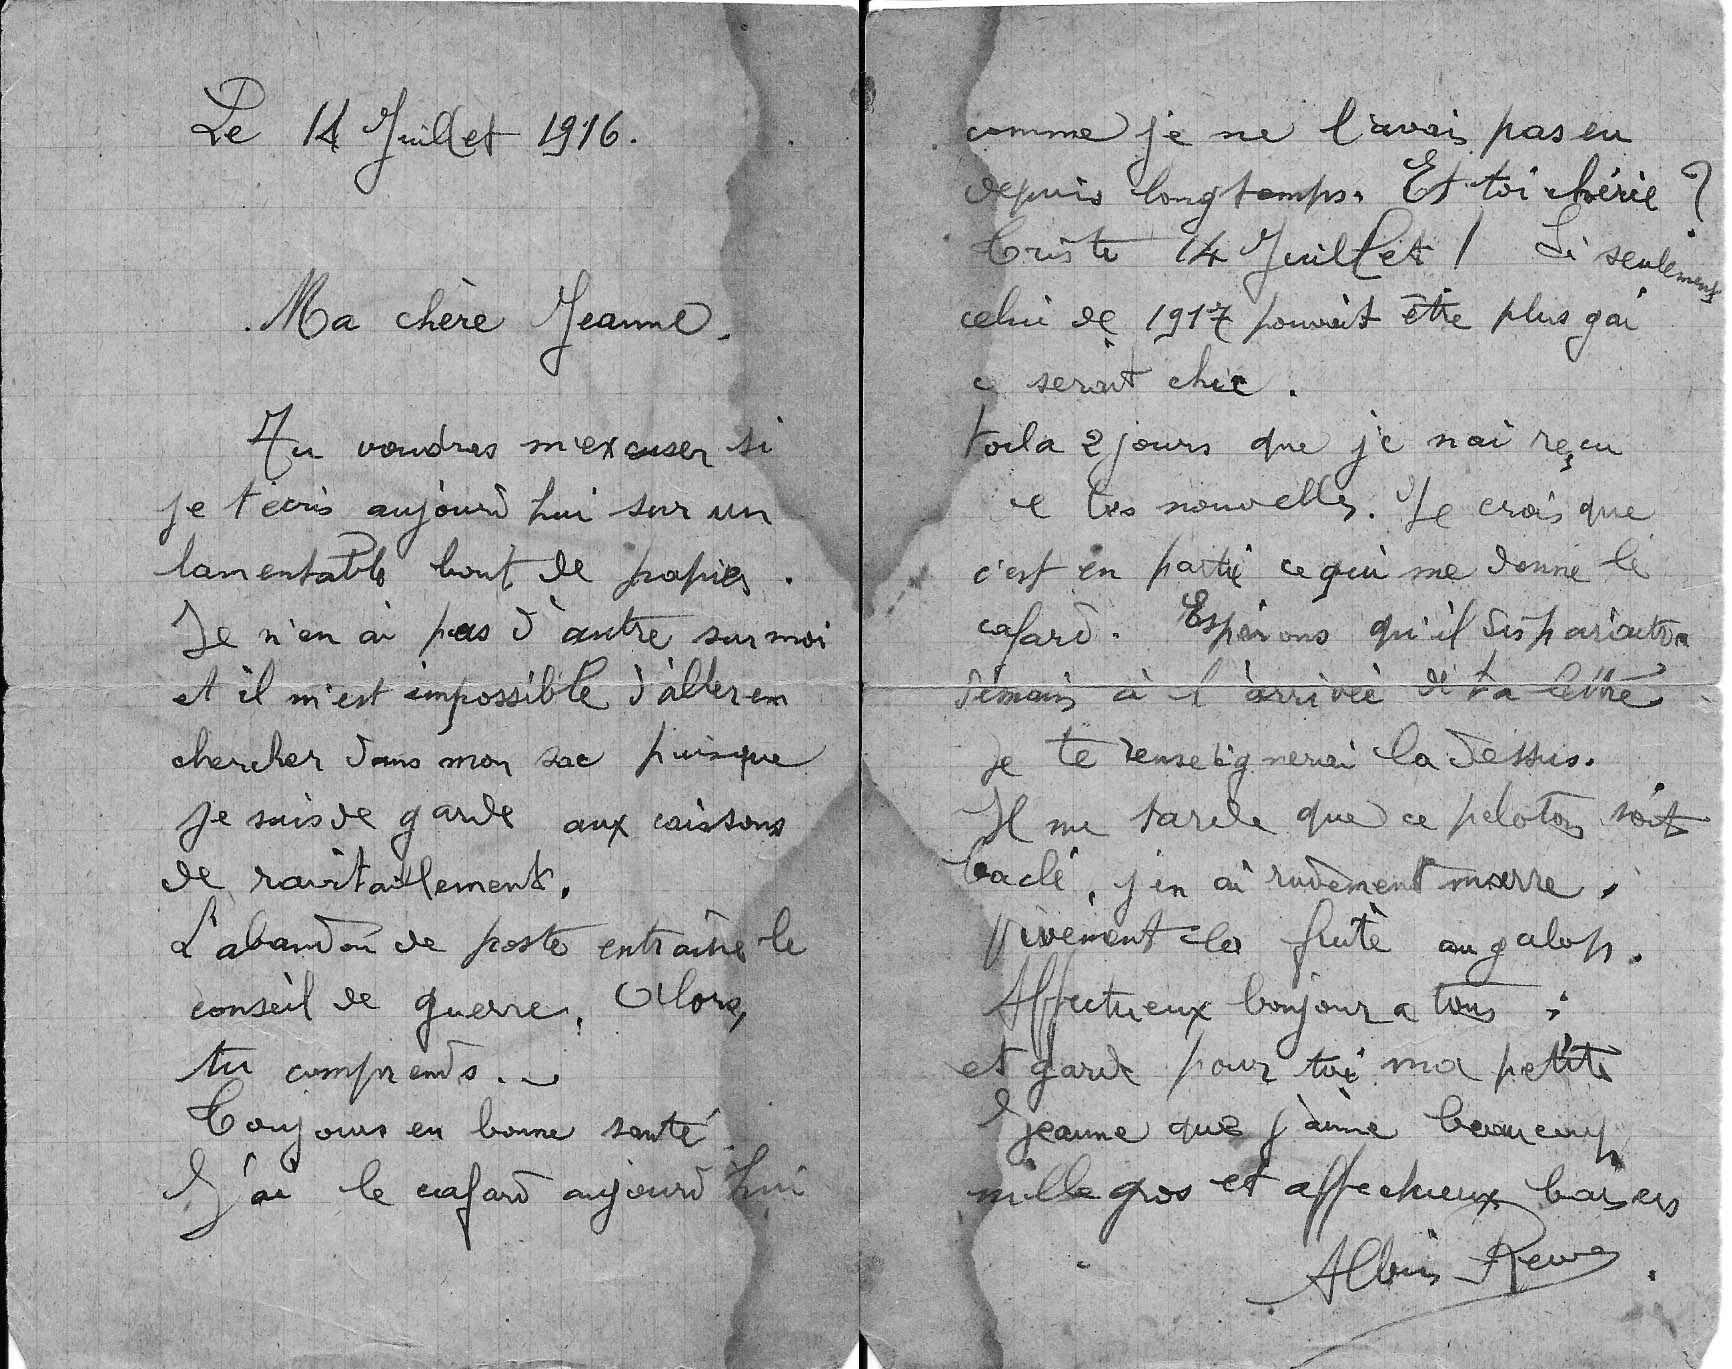 Le 14 Juillet 1916.
Ma chère Jeanne.
Tu voudras m'excuser si
je t'écris aujourd'hui sur un
lamentable bout de papier.
Je n'en ai pas d'autre sur moi
et il m'est impossible d'aller en
chercher dans mon sac puisque
je suis de garde aux caissons
de ravitaillement.
L'abandon de poste entraîne le
conseil de guerre. Alors,
tu comprends...
Toujours en bonne santé
J'ai le cafard aujourd'hui
comme je ne l'avais pas eu
depuis longtemps. Et toi chérie ?
Triste 14 Juillet ! Si seulement
celui de 1917 pouvait être plus gai
ce serait chic.
Voila 2 jours que je n'ai reçu
de tes nouvelles. Je crois que
c'est en partie ce qui me donne le
cafard. Espérons qu'il disparaîtra
demain à l'arrivée de ta lettre
Je te renseignerai la dessus.
Il me tarde que ce peloton soit
baclé, j'en ai rudement marre.
Vivement la fuite au galop.
Affectueux bonjour a tous
et garde pour toi ma petite
Jeanne que j'aime beaucoup
mille gros et affectueux baisers
Albin